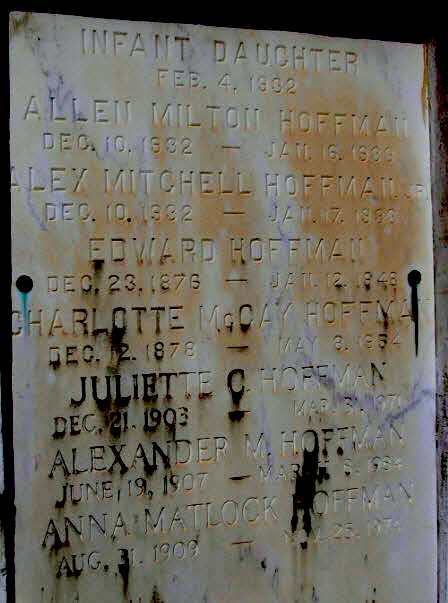 INFANT DAUGHTER
FEB. 4, 1932
ALLEN MILTON HOFFMAN
DEC. 10, 1932 — JAN. 16, 1933
ALEX MITCHELL HOFFMAN, JR.
DEC. 10, 1932 — JAN. 17, 1933
EDWARD HOFFMAN
DEC. 23, 1876 — JAN. 12, 1948
CHARLOTTE McCAY HOFFMAN
DEC. 12, 1878 — MAY 8, 1954
JULIETTE C. HOFFMAN
DEC. 21, 1903 — MAR. 31, 1971
ALEXANDER M. HOFFMAN
JUNE, 19, 1907 — MARCH 8, 1984
ANNA MATLOCK HOFFMAN
AUG. 31, 1909 — NOV. 25, 1974